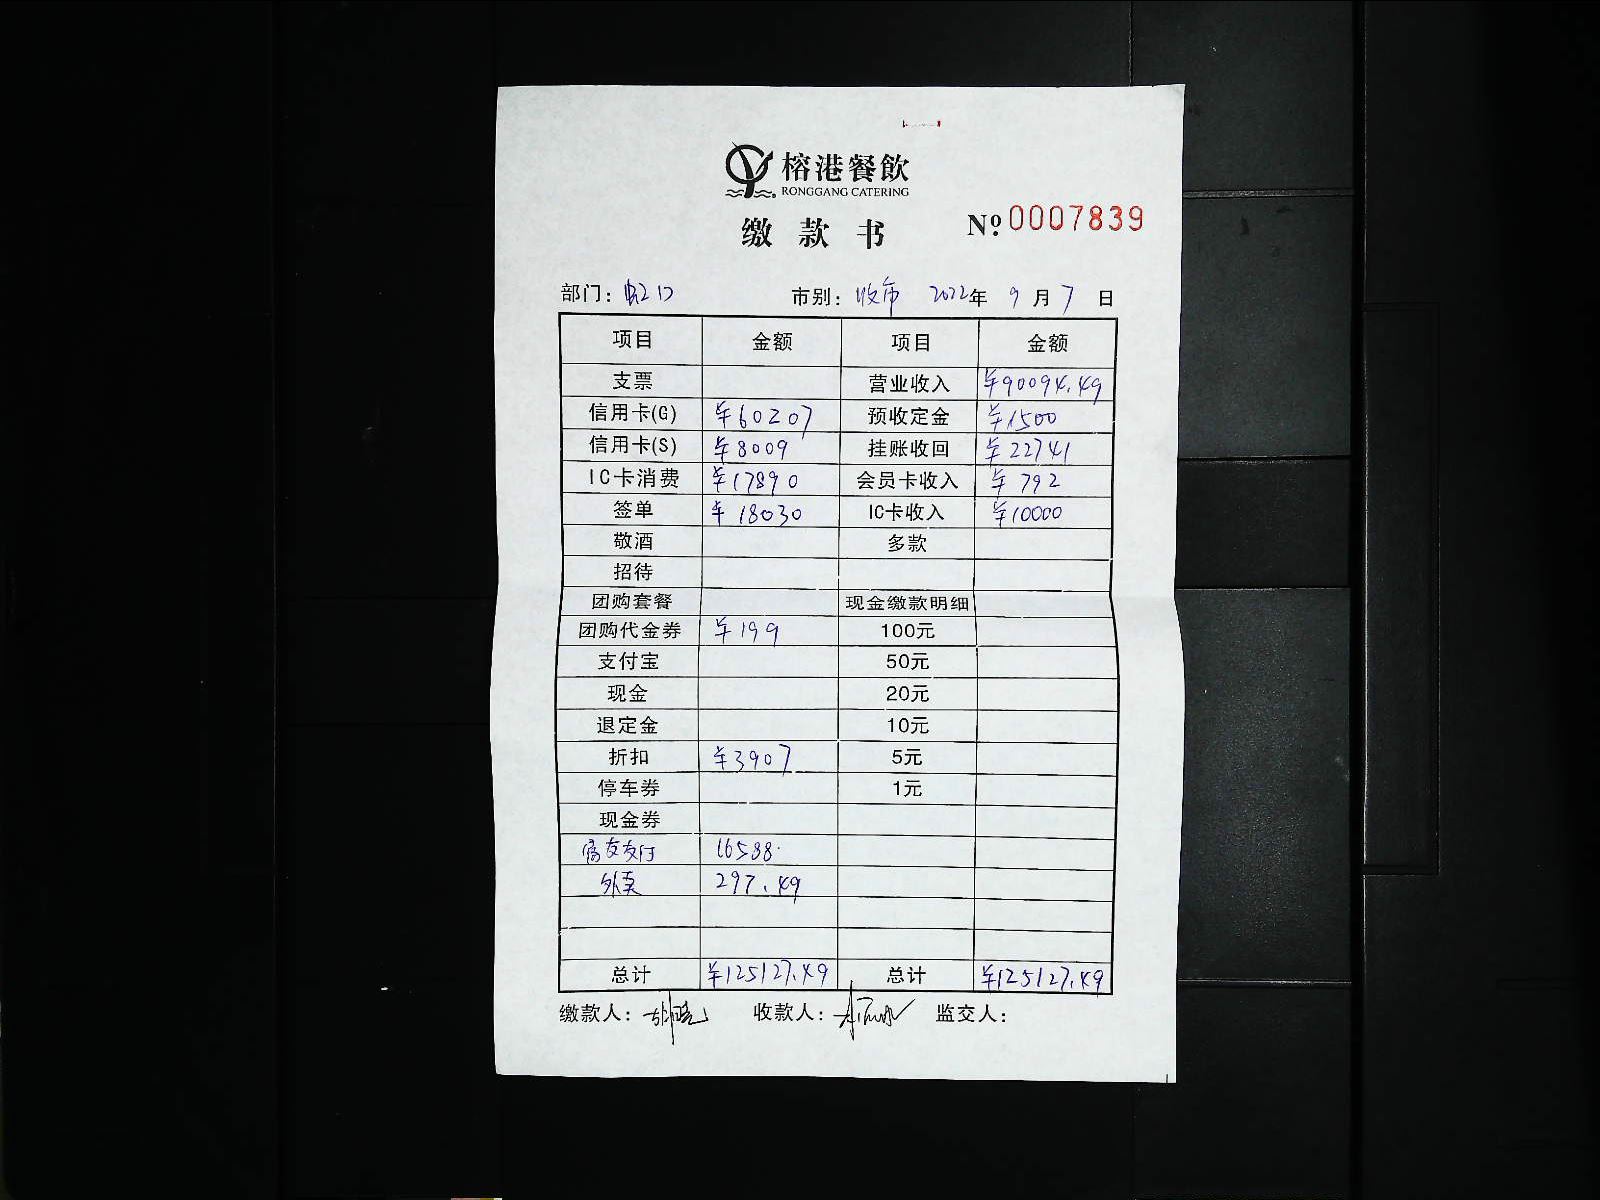 榕港餐飲
RONGGANG CATERING
缴款书 Nº 0007839
部门：虹口 市别：收市 2022年 9月 7日
项目 金额 项目 金额
支票 营业收入 ¥90094.49
信用卡(G) ¥60207 预收定金 ¥1500
信用卡(S) ¥8009 挂账收回 ¥22741
IC卡消费 ¥17890 会员卡收入 ¥792
签单 ¥18030 IC卡收入 ¥10000
敬酒 多款
招待
团购套餐 现金缴款明细
团购代金券 ¥199 100元
支付宝 50元
现金 20元
退定金 10元
折扣 ¥3907 5元
停车券 1元
现金券
富友支付 16588
外卖 297.49
总计 ¥125127.49 总计 ¥125127.49
缴款人： 收款人： 监交人：